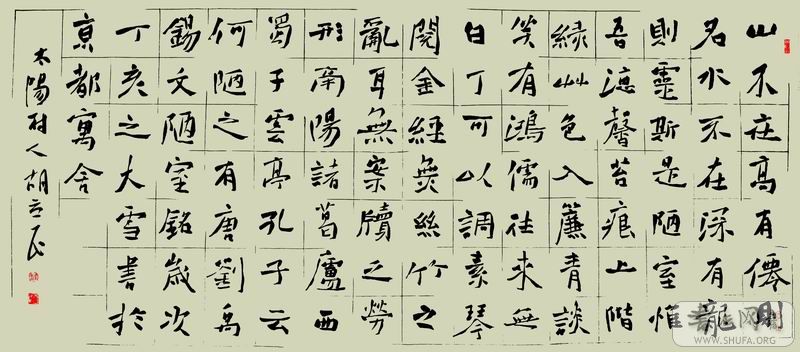 山不在高有僊則
名水不在深有龍
則靈斯是陋室惟
吾德馨苔痕上階
緑艸色入簾青談
笑有鴻儒往來無
白丁可以調素琴
閱金經無絲竹之
亂耳無案牘之勞
形南陽諸葛廬西
蜀子雲亭孔子云
何陋之有唐劉禹
錫文陋室銘歲次
丁亥之大雪書於
亰都寓舍
陽村人胡立民
WWW.SHUFA.COM